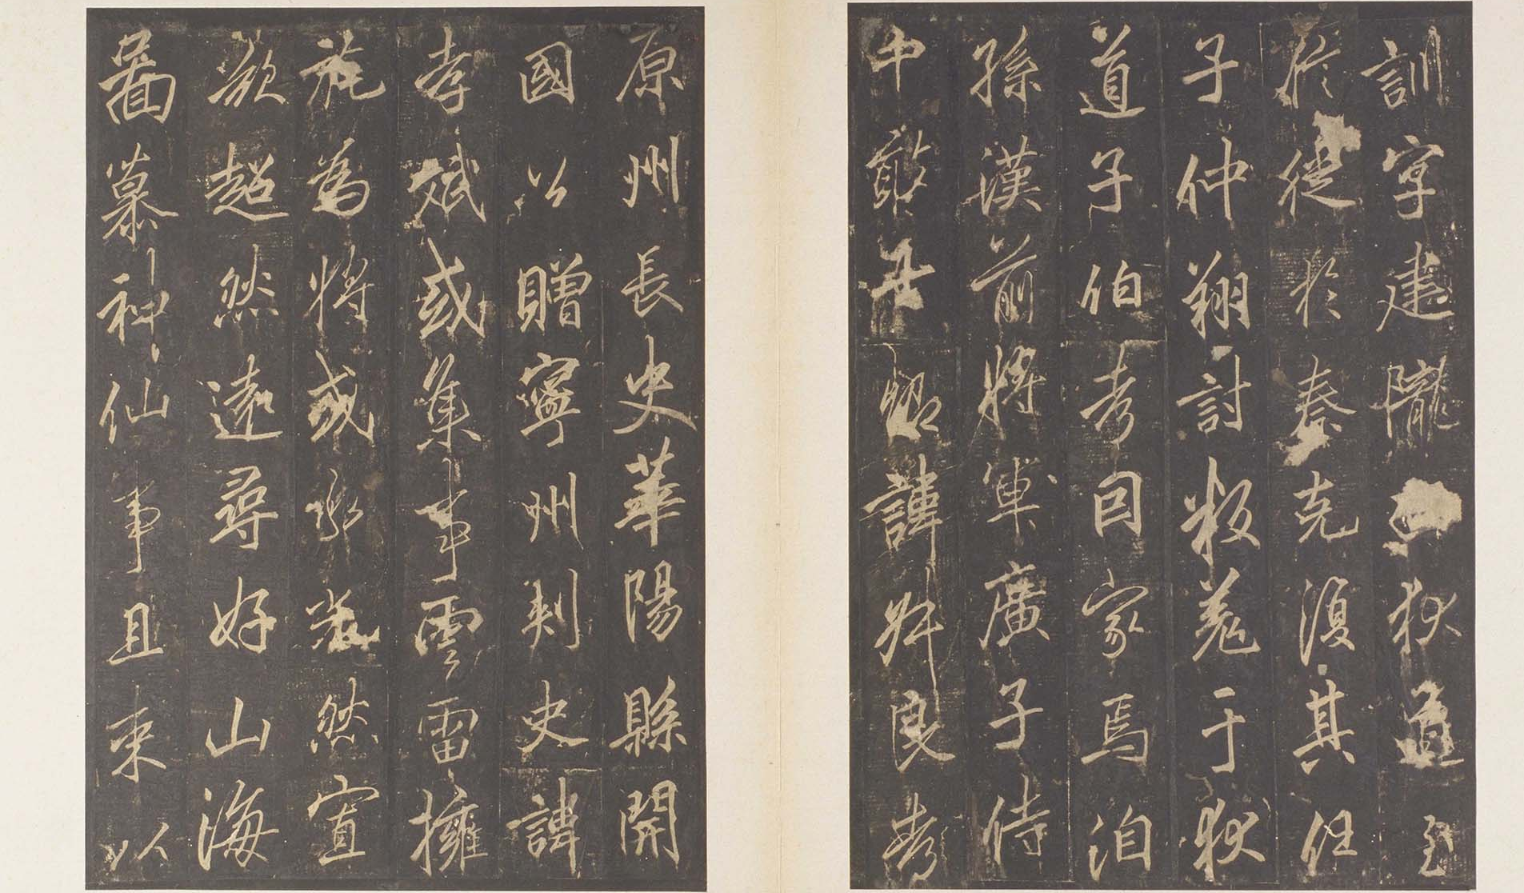 訓字建隴狄道至
從於秦克復其任
子仲翔討叛羌于狄
道子伯考因家焉洎
孫漢前將軍廣子侍
中敢世昭諱叔良考
原州長史華陽縣開
國公贈寧州刺史諱
孝斌或集事雲雷擁
旄為將或光然宣
歘超然遠尋好山海
圖慕神仙事且束以